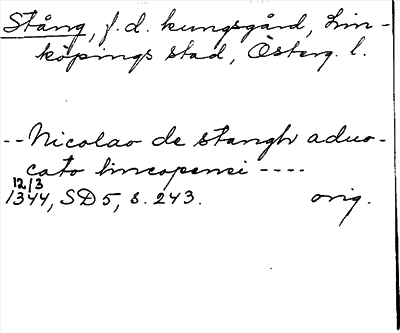 Stång, f.d. kungsgård, Lin-
köpings stad, Österg. l.
-- Nicolao de stangh aduo-
cato lincopensi ----
12/3
1344, SD 5, s. 243. orig.